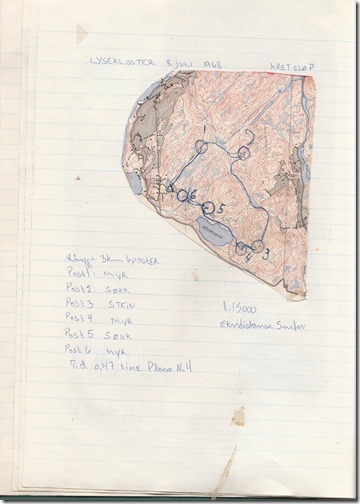 LYSEKLOSTER 8 JULI 1968 KRETSLØP
1
2
6
5
3
4
3km 6 poster
Post 1 MYR
Post 2 SØKK
Post 3 STEIN
Post 4 MYR
Post 5 SØKK
Post 6 MYR
Tid 0,47 Plass Nr 4
1:15000
Ekvidistanse 5 meter